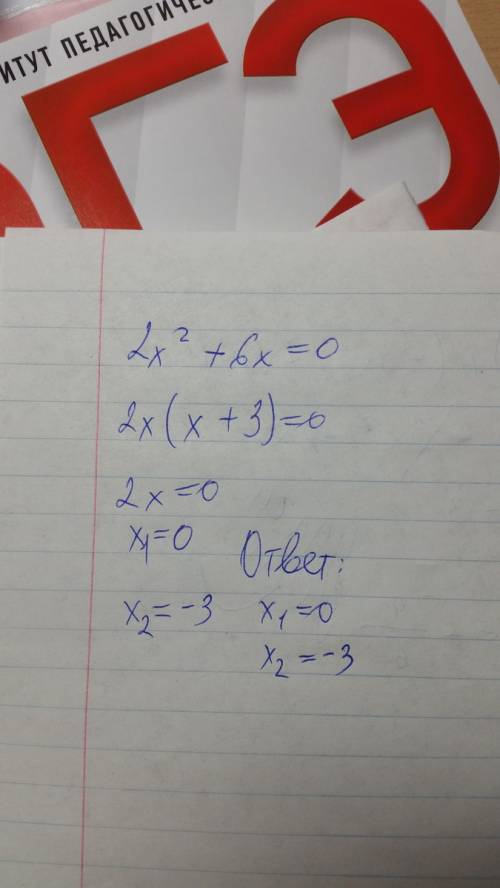 ИТУТ ПЕДАГОГИЧЕС
ГЭ
2x² + 6x = 0
2x(x + 3) = 0
2x = 0
x₁ = 0
Ответ:
x₂ = -3
x₁ = 0
x₂ = -3